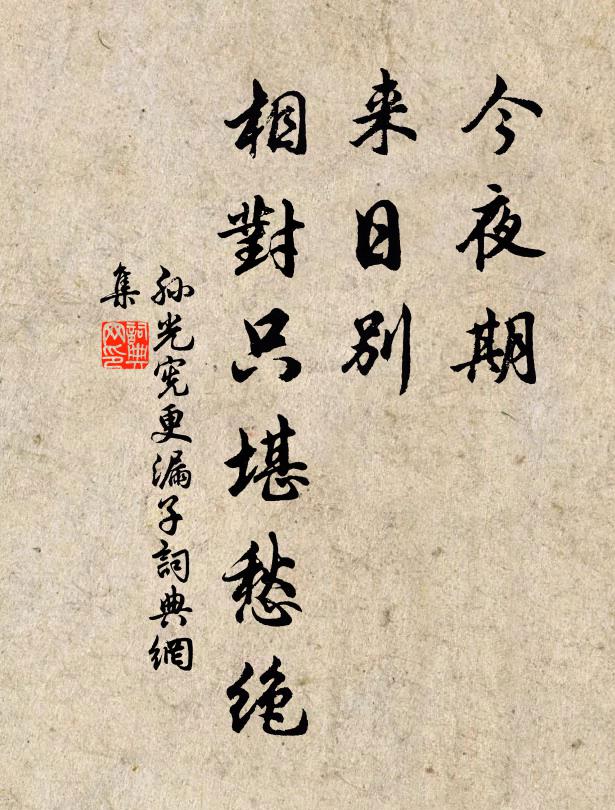 今夜期
来日别
相對只堪愁绝
孙光宪更漏子詞典網
集
詞典
网印